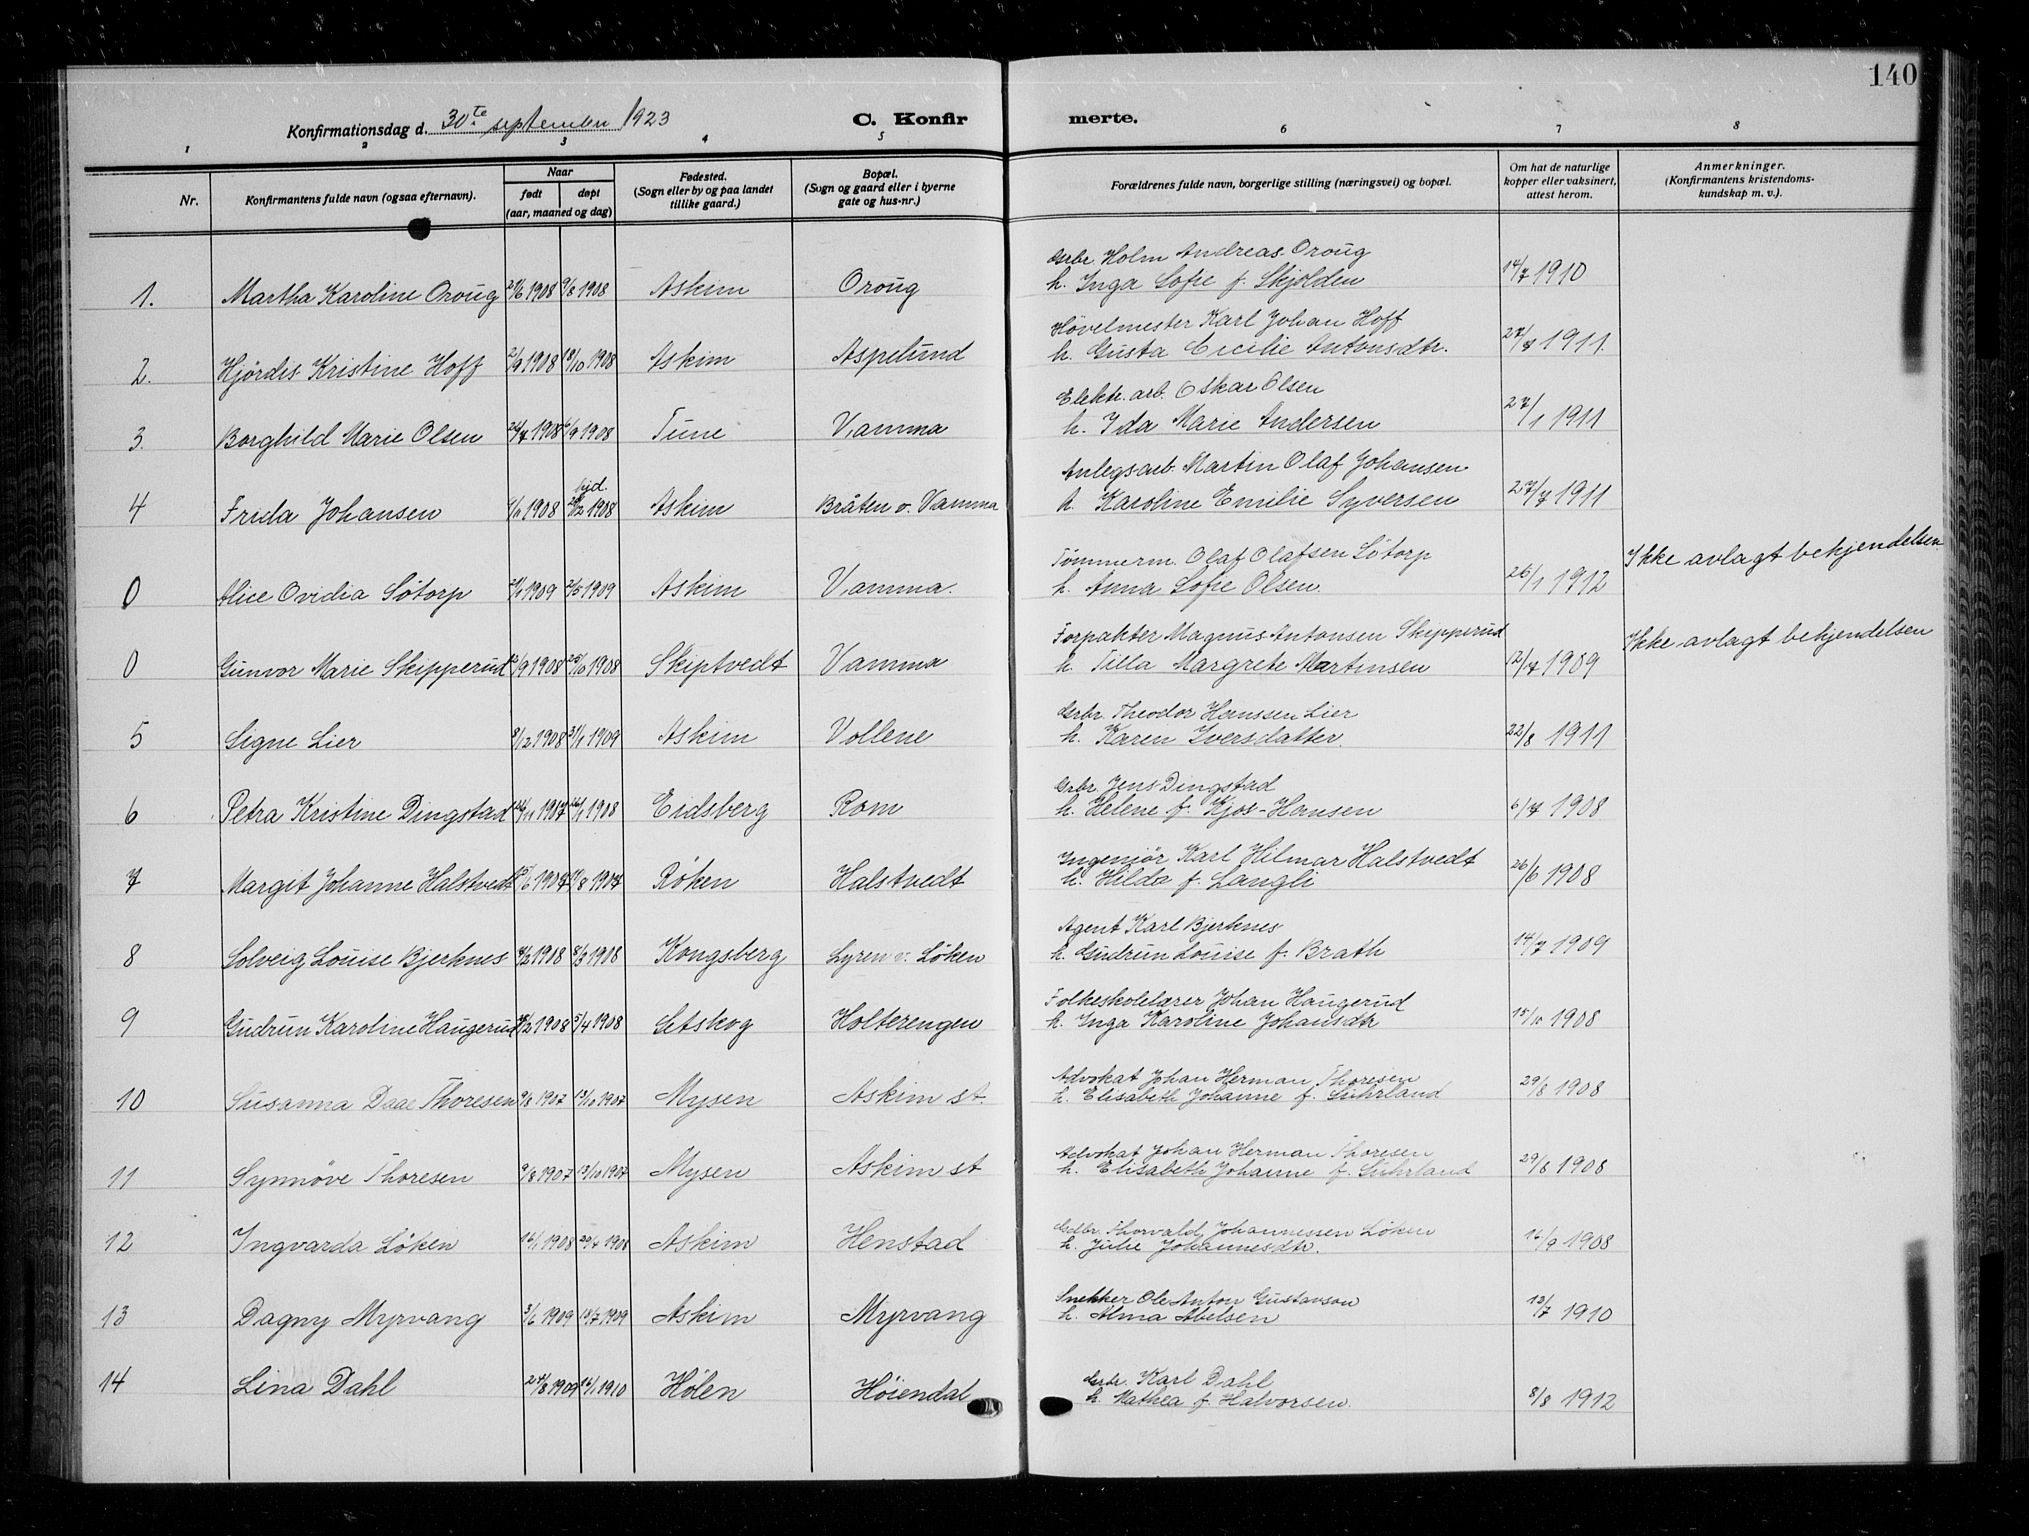 140
Konfirmationsdag d. 30te september 1923 C. Konfirmerte.
1 2 3 4 5 6 7 8
Nr. Konfirmantens fulde navn (ogsaa efternavn). Naar født døpt (aar, maaned og dag) Fødested. (Sogn eller by og paa landet tillike gaard.) Bopæl. (Sogn og gaard eller i byerne gate og hus-nr.) Forældrenes fulde navn, borgerlige stilling (næringsvei) og bopæl. Om hat de naturlige kopper eller vaksinert, attest herom. Anmerkninger. (Konfirmantens kristendomskundskap m. v.).
Grbr. Holm Andreas Oroug
1. Martha Karoline Oroug 21/6 1908 9/8 1908 Askim Oroug h. Inga Sofie f. Skjolden 14/7 1910
Høvelmester Karl Johan Hoff
2. Hjørdis Kristine Hoff 2/9 1908 18/10 1908 Askim Aspelund h. Gusta Cicilie Antonsdtr. 27/7 1911
Elektr. arb. Oskar Olsen
3. Borghild Marie Olsen 1908 1908 Tune Vamma h. Ida Marie Andersen 27/1 1911
Anlegsarb. Martin Olaf Johansen
4 Frida Johansen 1908 1908 Askim Bråten v. Vamma h. Karoline Emilie Syversen 27/7 1911
Tømmerm. Olaf Olafsen Søtorp Ikke avlagt bekjendelsen
0 Alice Ovidia Søtorp 1909 2/5 1909 Askim Vamma. h. Anna Sofie Olsen. 26/1 1912
Forpakter Magnus Antonsen Skipperud Ikke avlagt bekjendelsen
0 Gunvor Marie Skipperud 1908 25/10 1908 Skiptvedt Vamma h. Tilla Margrete Martinsen 12/7 1909
Grbr. Theodor Hanssen Lier
5 Signe Lier 8/12 1908 31/1 1909 Askim Vollene h. Karen Iversdatter. 22/8 1911
Grbr. Jens Dingstad
6 Petra Kristine Dingstad 1907 26/1 1908 Eidsberg Rom h. Helene f. Kjos-Hansen 6/7 1908
Ingeniør Karl Hilmar Halstvedt
7 Margit Johanne Halstvedt 1907 1907 Røken Halstvedt h. Hilda f. Langli 26/6 1908
Agent Karl Bjerknes
8 Solveig Louise Bjerknes 1908 8/3 1908 Kongsberg Lyren v. Løken h. Gudrun Louise f. Brath 14/7 1909
Folkeskolelærer Johan Haugerud
9 Gudrun Karoline Haugerud 1908 5/4 1908 Setskog Holterengen h. Inga Karoline Johansdtr 15/10 1908
Advokat Johan Herman Thoresen
10 Susanna Daae Thoresen 9/8 1907 13/10 1907 Mysen Askim st. h. Elisabeth Johanne f. Suhrland 29/8 1908
Advokat Johan Herman Thoresen
11 Synnøve Thoresen 9/8 1907 13/10 1907 Mysen Askim st h. Elisabeth Johanne f. Suhrland 29/8 1908
Gdbr. Thorvald Johannessen Løken
12 Ingvarda Løken 16/1 1908 20/4 1908 Askim Henstad h. Julie Johannesdtr. 16/9 1908
Snekker Ole Anton Gustavson
13 Dagny Myrvang 3/6 1909 18/7 1909 Askim Myrvang h. Alma Abelsen 13/7 1910
Grbr. Karl Dahl
14 Lina Dahl 24/8 1909 16/1 1910 Hølen Høiendal h. Mathea f. Halvorsen. 8/8 1912